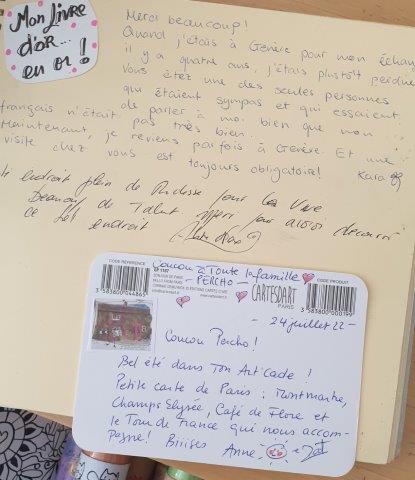 Mon Livre
d'or...
en or!
Merci beaucoup!
Quand j'étais à Genève pour mon échange
il y a quatre ans, j'étais plustôt perdue
Vous étez une des seules personnes
qui étaient sympas et qui essaient
de parler à moi bien que mon
français n'était pas très bien.
Maintenant, je reviens parfois à Genève. Et une
visite chez vous est toujours obligatoire! Kara
endroit plein de pour
Beaucoup de Talent pour avoir découvert
ce bel endroit
Coucou à Toute la famille
- PERCHO -
CODE RÉFÉRENCE
CODE PRODUIT
CARTESD'ART
PARIS
3 583800 044865
3 583800 000199
- 24 juillet 22 -
Coucou Percho!
Bel été dans Ton Art'Cade!
Petite carte de Paris: Montmartre,
Champs Elysée, Café de Flore et
le Tour de France qui nous accom-
pagne! Biiises Anne